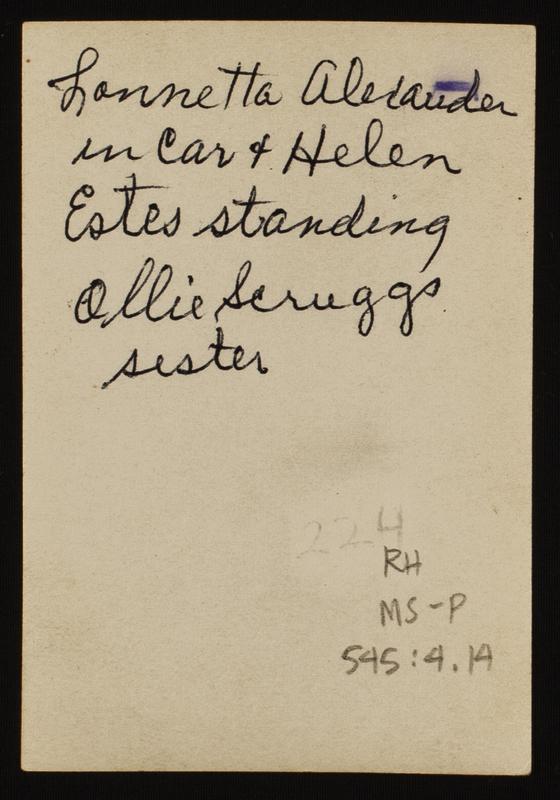 Lonnetta Alexander
in Car & Helen
Estes standing
Ollie Scruggs
sister
224
RH
MS-P
545:4.14